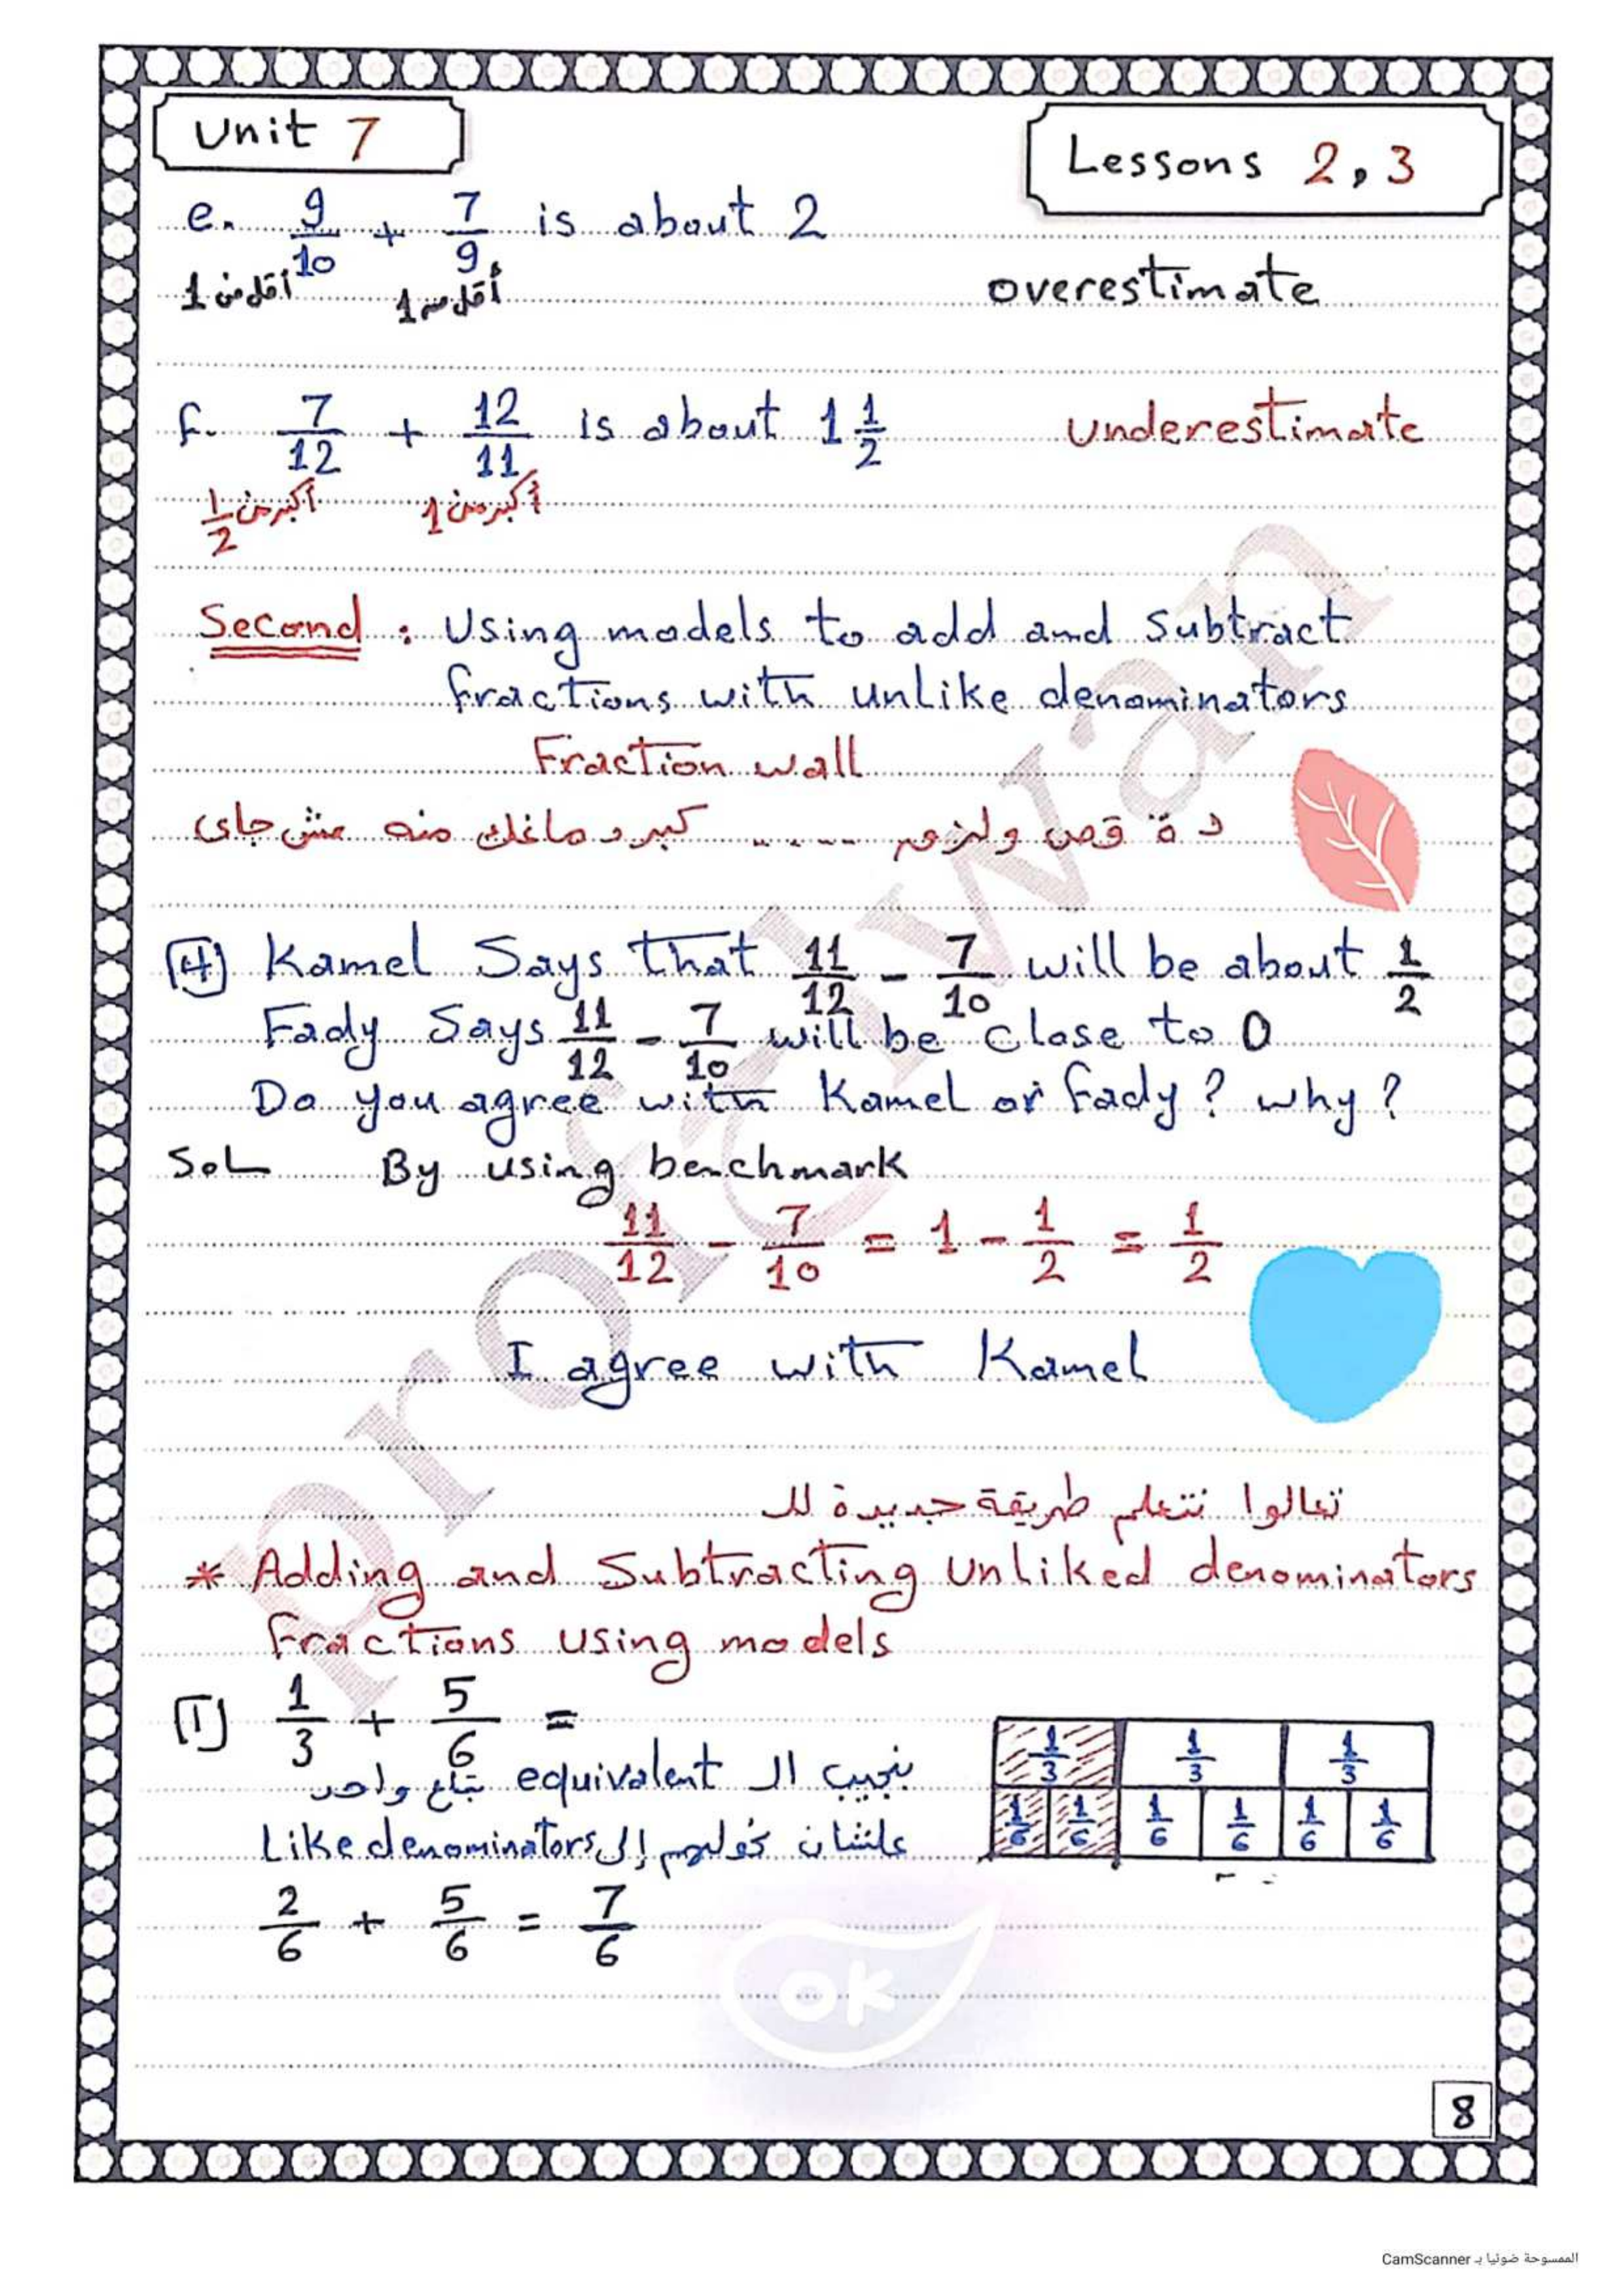 Unit 7
Lessons 2, 3
e. 9/10 + 7/9 is about 2
أقل من 1 أقل من 1 overestimate
f. 7/12 + 12/11 is about 1 1/2 underestimate
أكبر من 1/2 أكبر من 1
Second : Using models to add and subtract
fractions with unlike denominators
Fraction wall
دة قص ولزق ..... كبر دماغك منه مش جاى
[4] Kamel Says that 11/12 - 7/10 will be about 1/2
Fady Says 11/12 - 7/10 will be close to 0
Do you agree with Kamel or fady ? why ?
Sol By using benchmark
11/12 - 7/10 = 1 - 1/2 = 1/2
I agree with Kamel
تعالوا نتعلم طريقة جديدة لل
* Adding and Subtracting Unliked denominators
fractions using models
[1] 1/3 + 5/6 =
1/3 1/3 1/3
بنجيب ال equivalent بتاع واحد
1/6 1/6 1/6 1/6 1/6 1/6
علشان نحولهم إلى Like denominators
2/6 + 5/6 = 7/6
ok
8
profelwan
الممسوحة ضوئيا بـ CamScanner